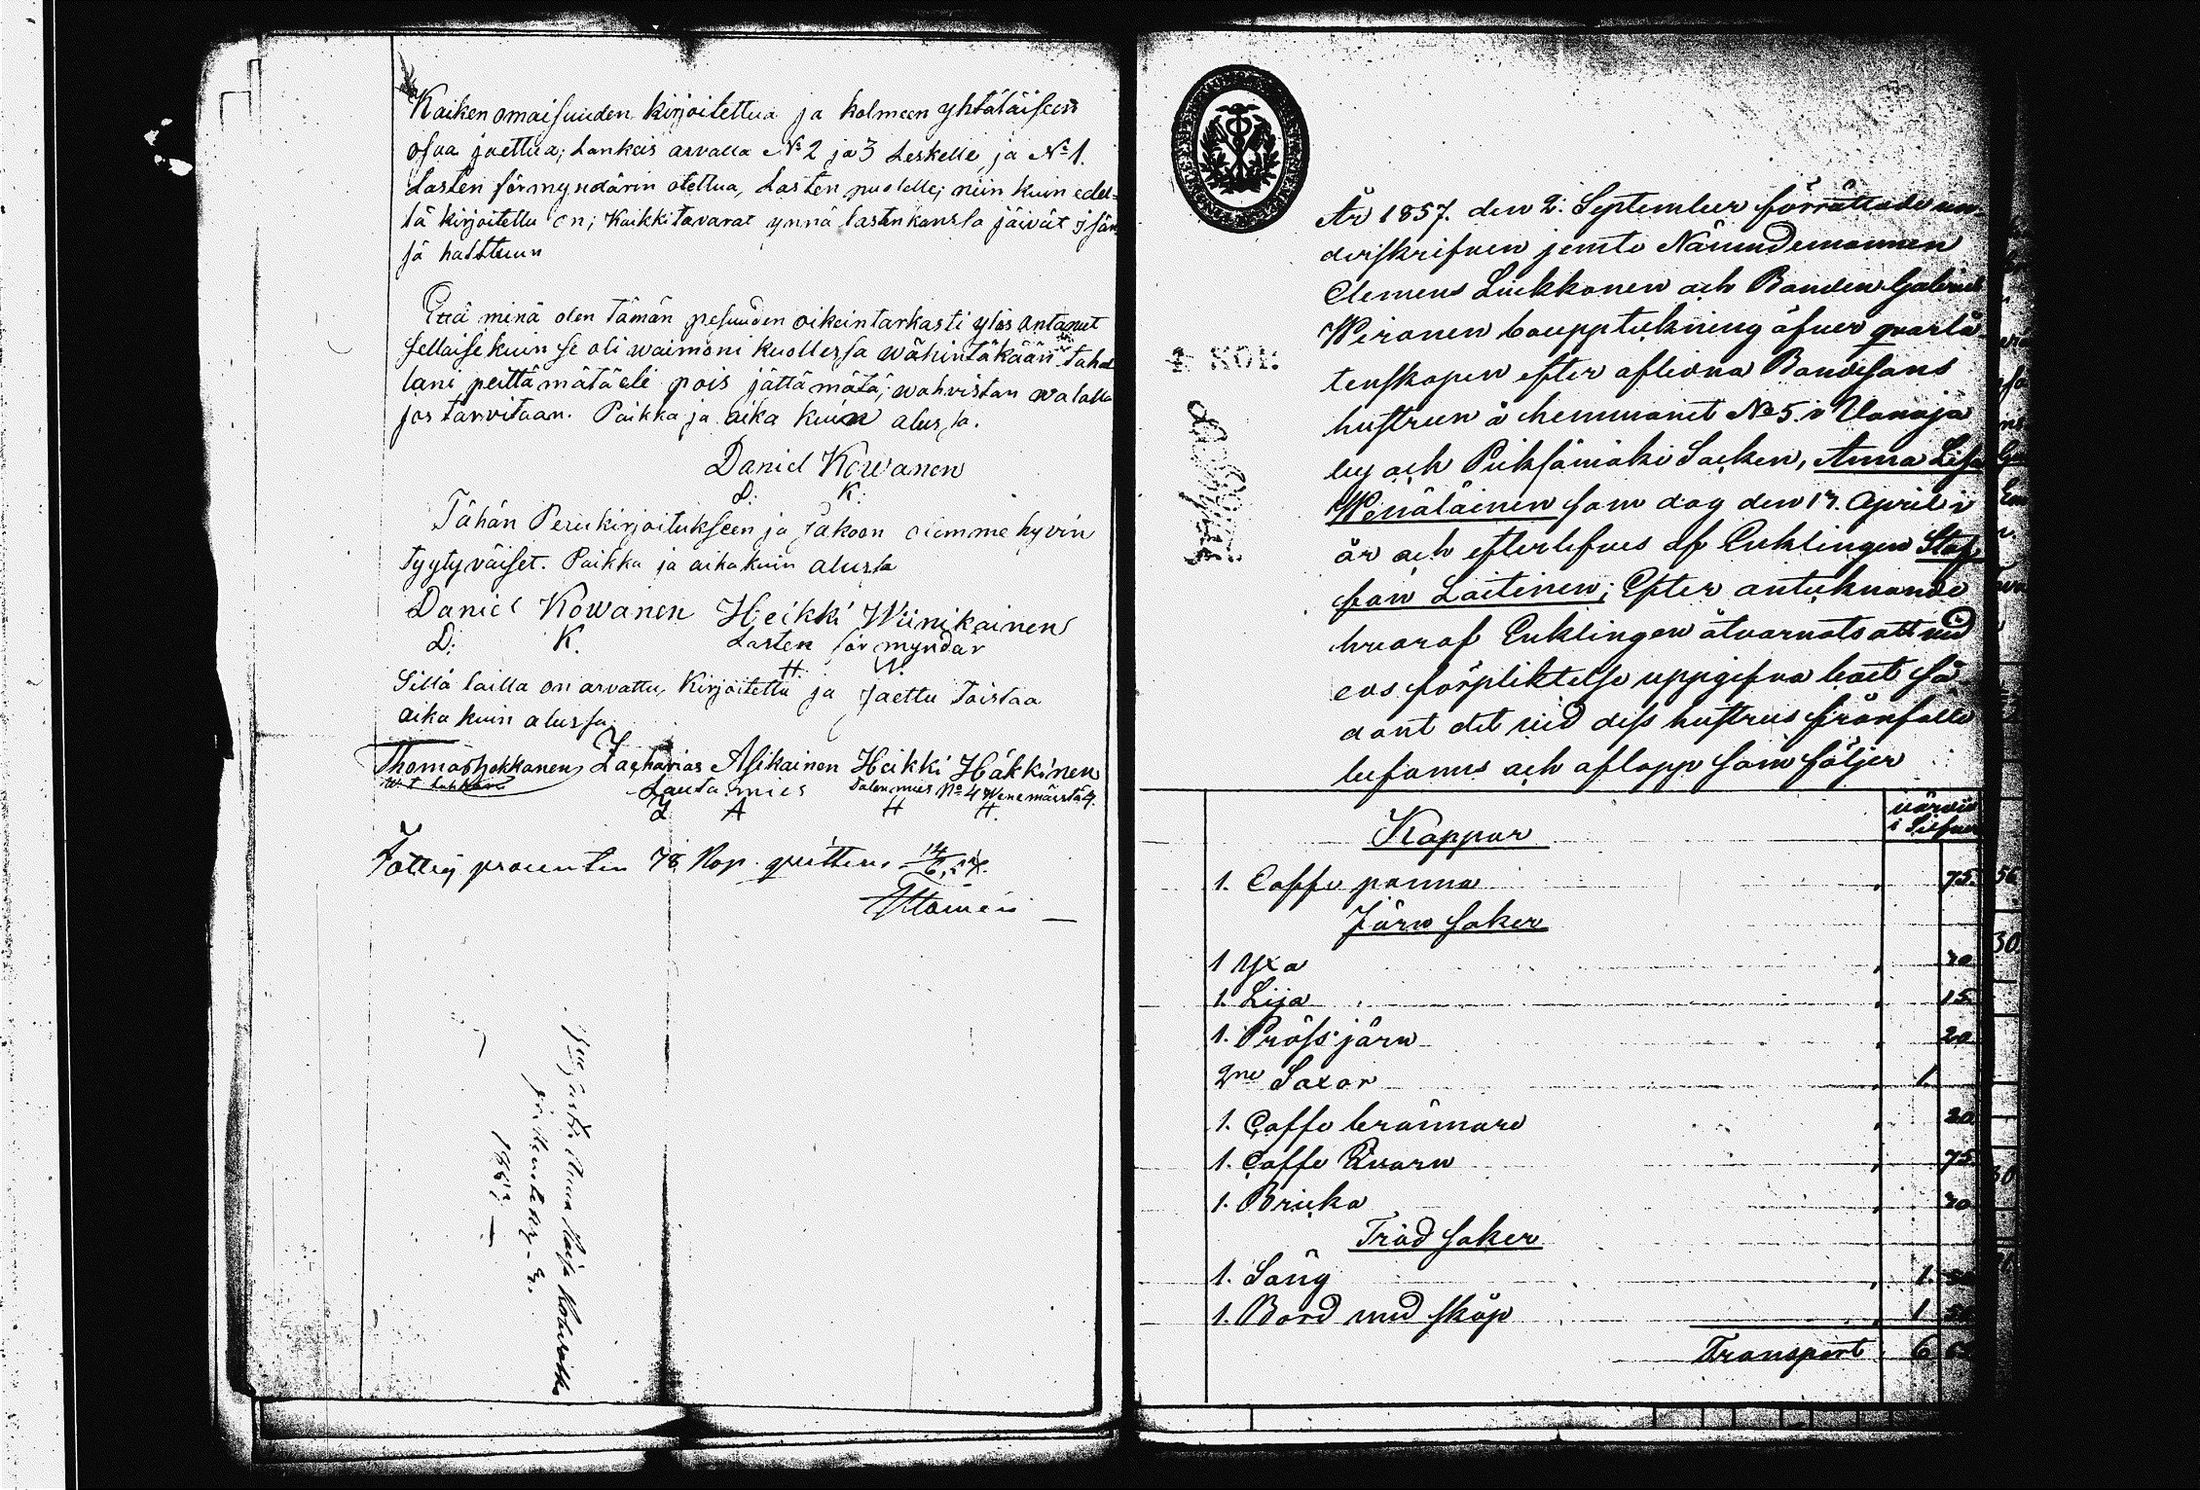 Kaiken omaisuuden kirjoitettua ja kolmeen yhtäläiseen
osaa jaettua; Lankeis arvalla No 2 ja 3 Leskelle, ja No 1.
Lasten förmyndärin otettua, Lasten puolelle; niin kuin edel-
lä kirjoitettu on; Kaikki tavarat ynnä lasten kansla jäivät Isän
sä halttuun
Että minä olen tämän pesuuden oikein tarkasti ylös antanut
sellaise kuin se oli waimoni kuollessa wähintäkään tahal
lani peittämätä eli pois jättämätä; wahvistan walalla
jos tarvitaan. Paikka ja aika kuin alussa.
Daniel Kowanen
D: K:
Tähän Perukirjoitukseen ja Jakoon olemme hyvin
tyytyväiset. Paikka ja aika kuin alusta
Daniel Kowanen Heikki Wiinikainen
D: K. Lasten förmyndär
H: W.
Sillä lailla on arvattu, Kirjoitettu ja Jaettu Toistaa
aika kuin alussa
Thomas Hokkanen Zacharias Asikainen Heikki Häkkinen
Lautamies Talon mies No 4 Wenemäestä
Z A H H.
Fattig procenten 78 Kop. quitteras
1857
4 KOP.
År 1857. den 2: September förrättade un-
derskrifven jemte Nämndemannen
Clemens Liukkonen och Bonden Gabriel
Weronen bouppteckning öfver qvarlå-
tenskapen efter aflidna Bondesons
hustrun å hemmanet No 5. i Vanaja
by och Pieksämäki Socken, Anna Lisa
Wenäläinen som dog den 17. April i
år och efterlefves af Enklingen Staf
fan Laitinen; Efter antecknande
hvaraf Enklingen åtvarnats att vid
eds förpliktelse uppgifva boet så-
dant det vid dess hustrus frånfälle
befanns och aflopp som följer
värde
i Silfver
Koppar
1. Caffe panna 75.
Järn saker
1 Yxa
1. Lija 15.
1. Präss järn 20
2ne Saxar 1.
1. Caffe brännare 20
1. Caffe Qvarn 75
1. Bricka
Träd saker
1. Säng 1. 50
1. Bord med skåp 1 50
Transport 6